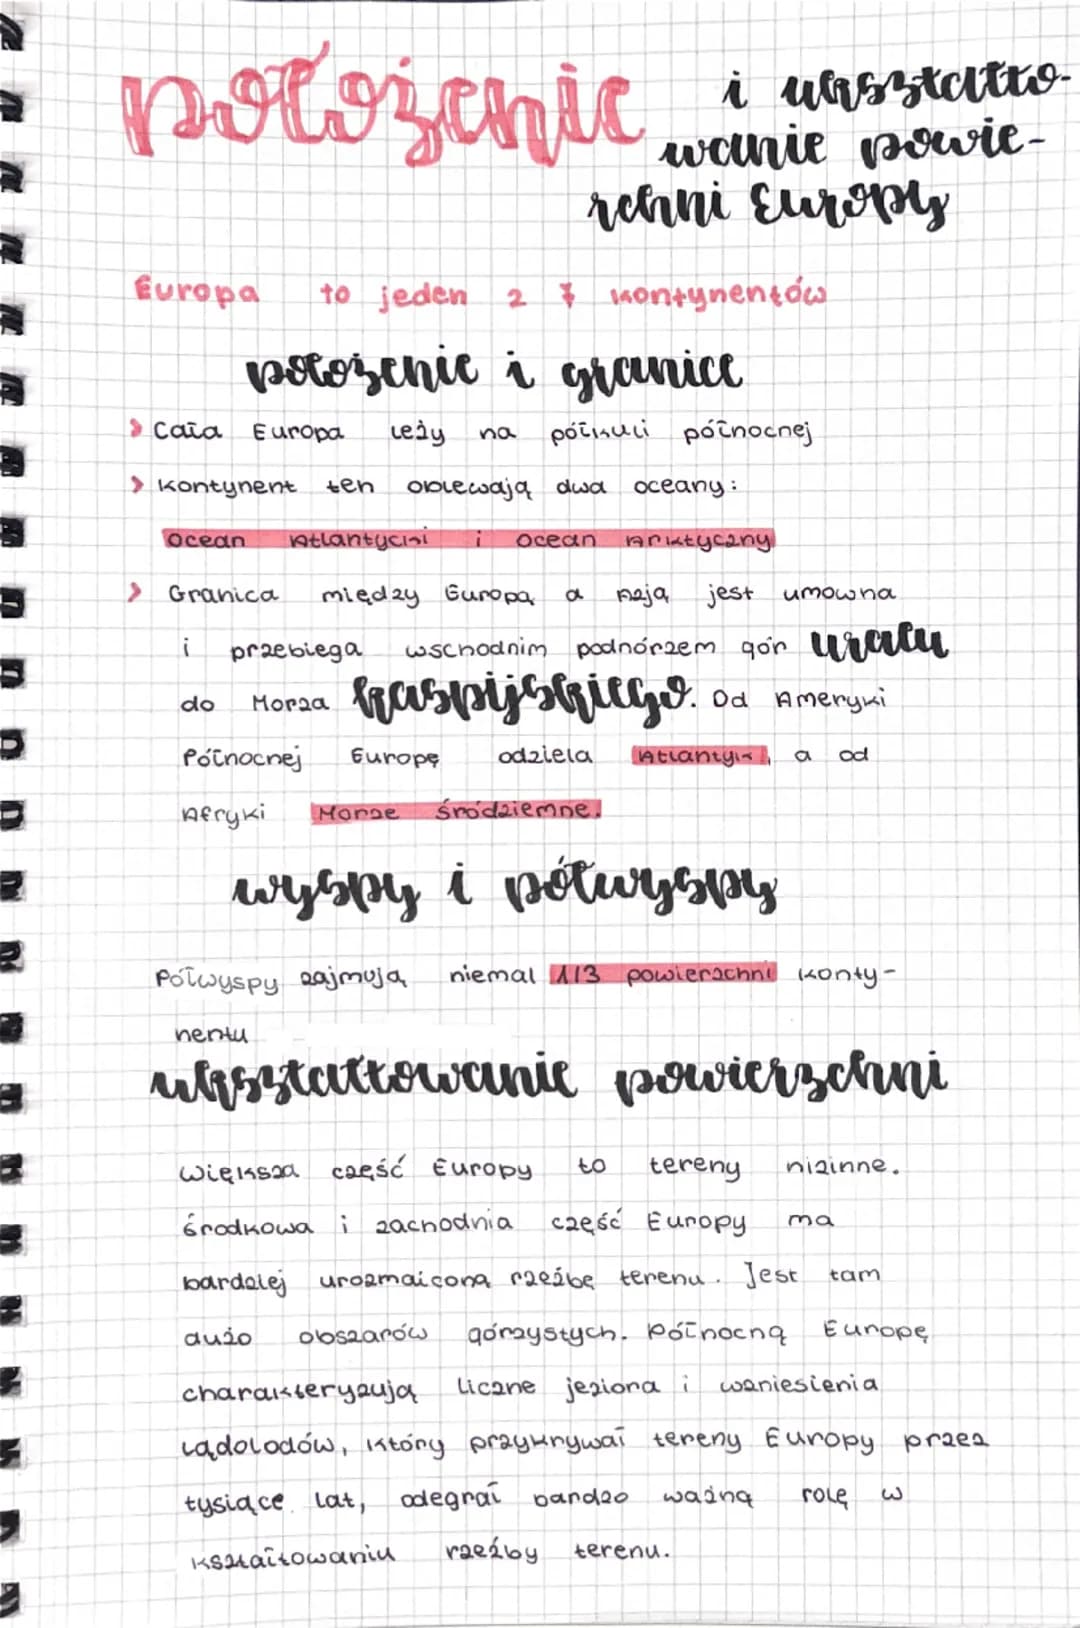 położenie i ukształto-
wanie powie-
rzchni Europy
Europa to jeden z 7 kontynentów
położenie i granice
> Cała Europa leży na półkuli północnej
> Kontynent ten oblewają dwa oceany:
Ocean Atlantycki i Ocean Arktyczny
> Granica między Europą a Azją jest umowna
i przebiega wschodnim podnóżem gór Uralu
do Morza Kaspijskiego. Od Ameryki
Północnej Europę odziela Atlantyk, a od
Afryki Morze Śródziemne.
wyspy i półwyspy
Półwyspy zajmują niemal 1/3 powierzchni konty-
nentu
ukształtowanie powierzchni
Większa część Europy to tereny nizinne.
Środkowa i zachodnia część Europy ma
bardziej urozmaiconą rzeźbę terenu. Jest tam
dużo obszarów górzystych. Północną Europę
charakteryzują liczne jeziora i wzniesienia
Lądolodów, który przykrywał tereny Europy przez
tysiące lat, odegrał bardzo ważną rolę w
kształtowaniu rzeźby terenu.